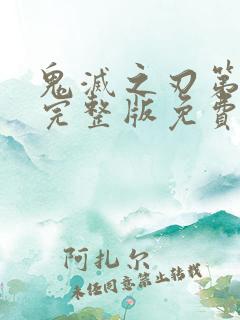 鬼滅之刃第
完整版免費
阿扎尔
未经同意禁止转载